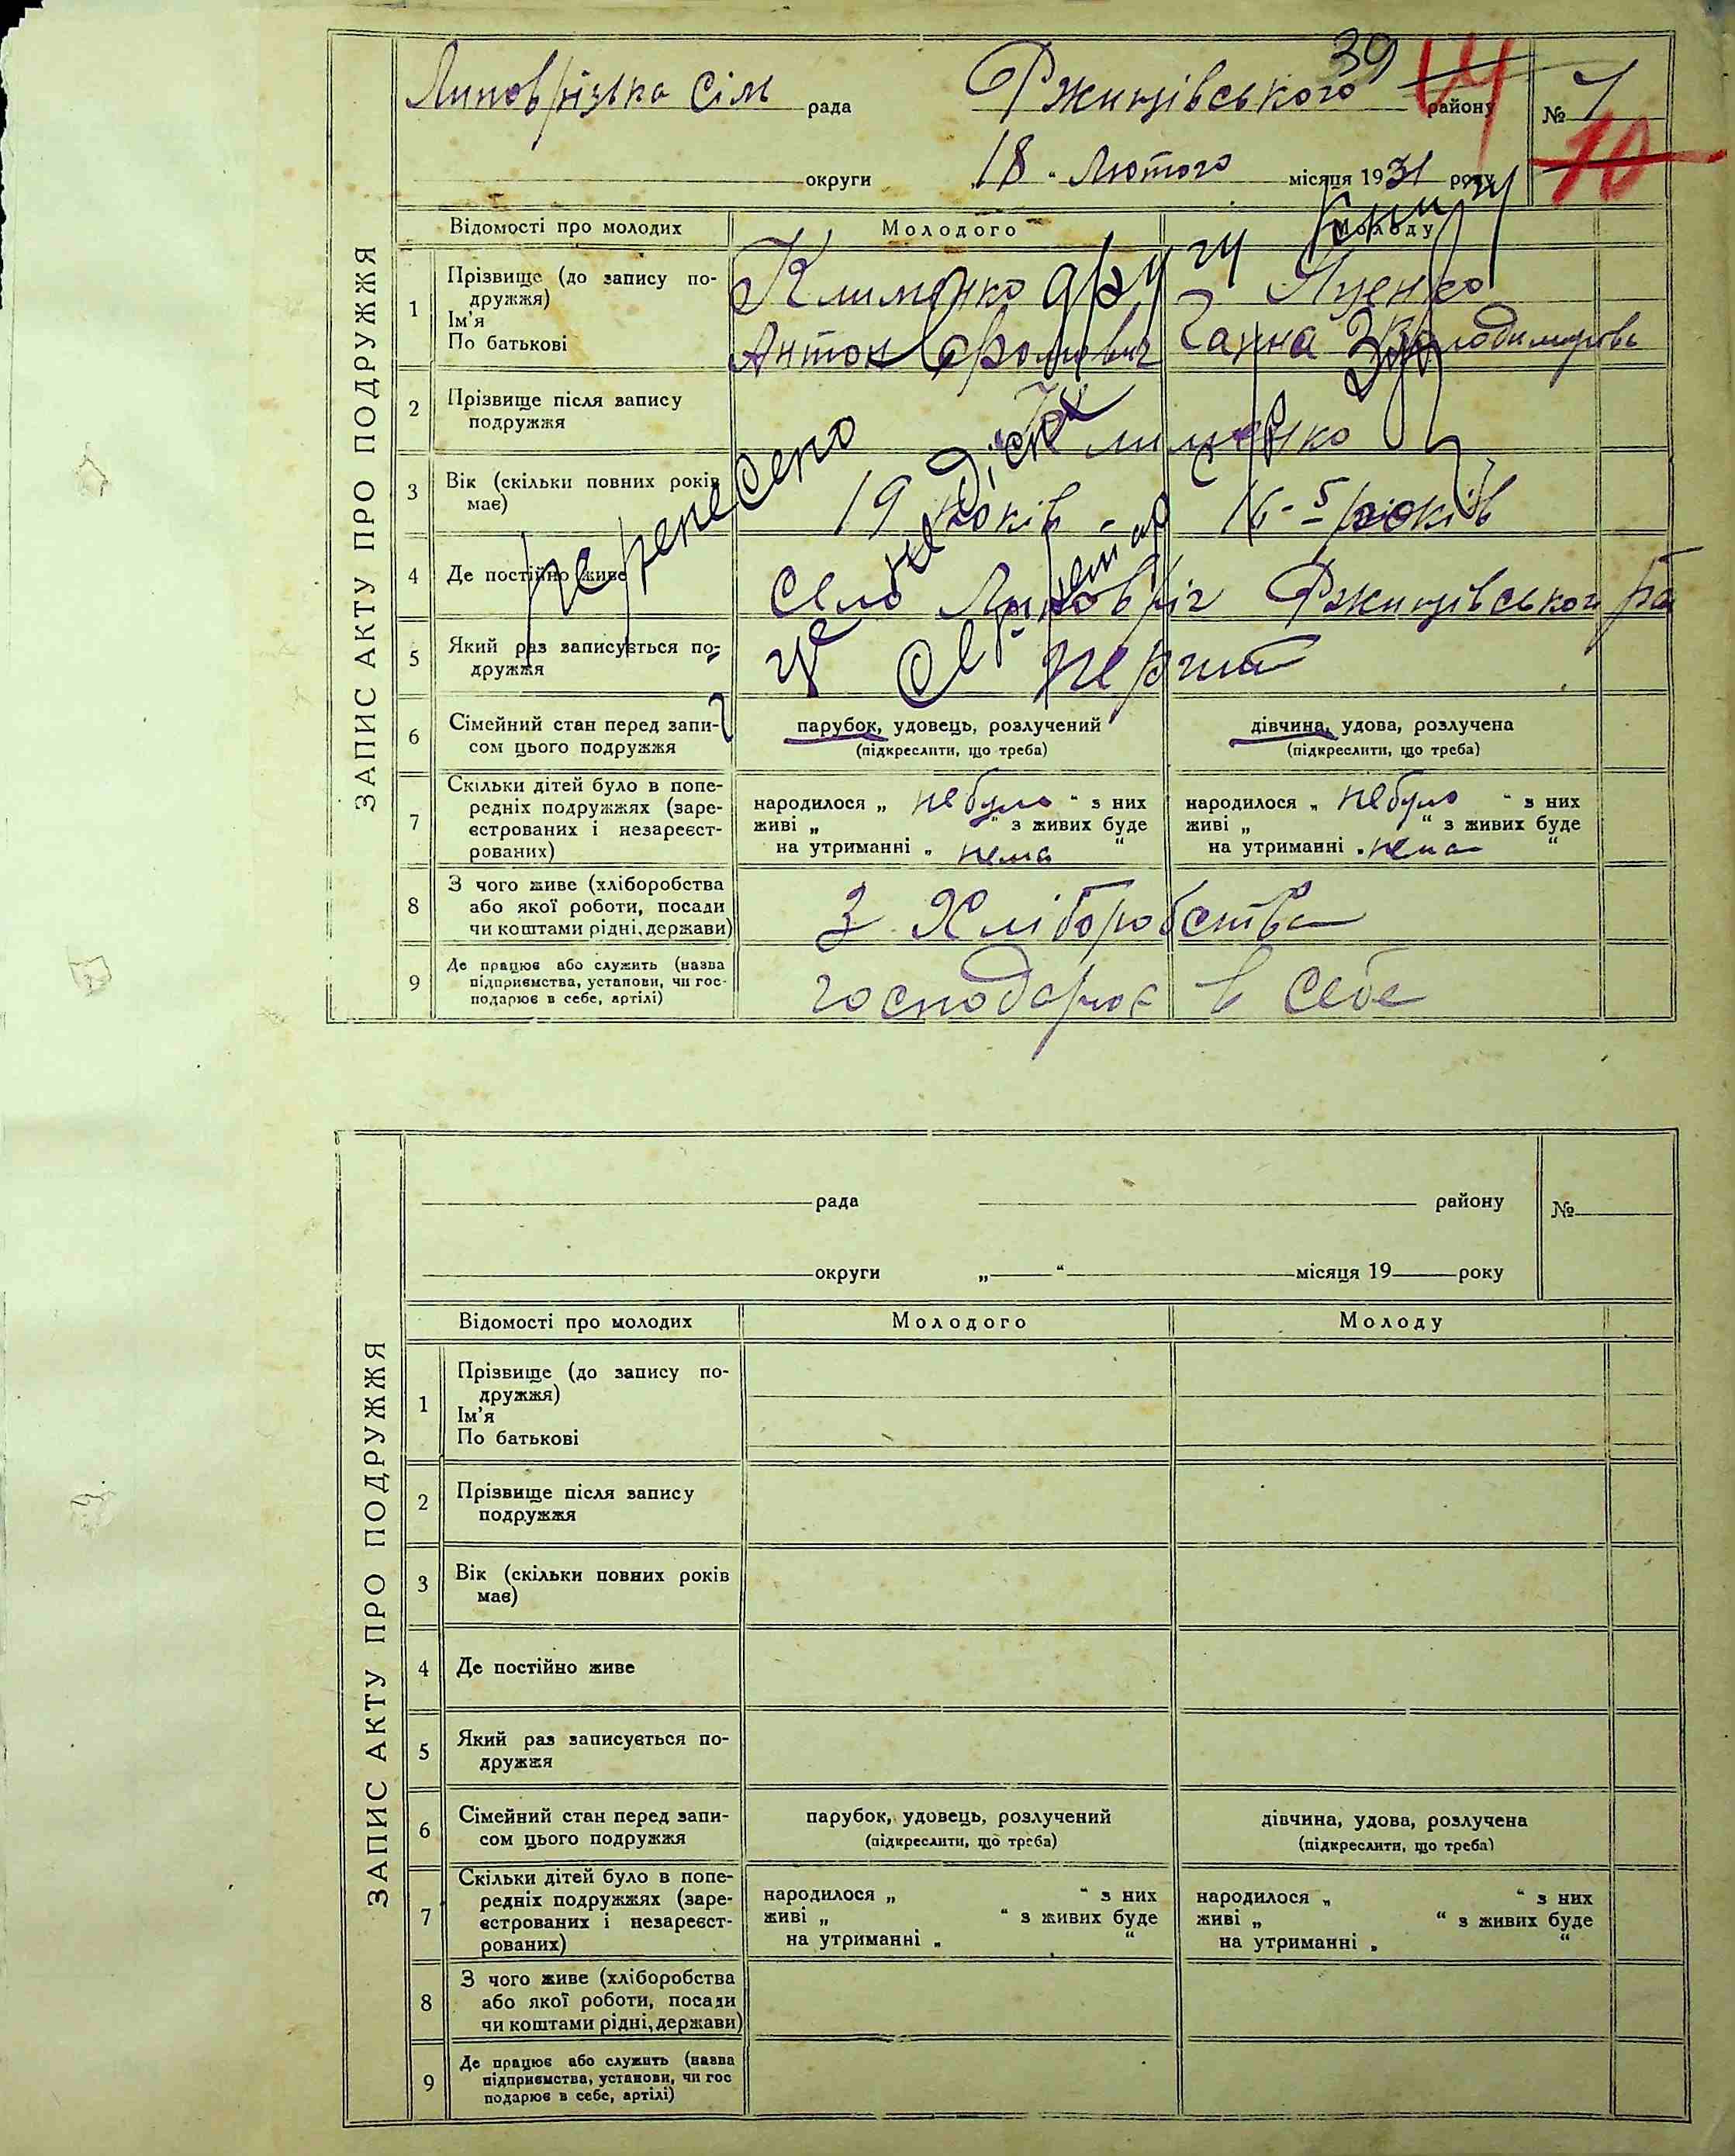 39 14
Липоврізька Сіль рада Ржищівського району № 7
10
округи „18“ Лютого місяця 1931 року
ЗАПИС АКТУ ПРО ПОДРУЖЖЯ
Відомості про молодих Молодого Молоду
1 Прізвище (до запису по-
дружжя)
Ім'я
По батькові
Клименко Яценко
Антон Ганна Володимирівн
2 Прізвище після запису
подружжя
Клименко
3 Вік (скільки повних років
має)
19 років - 16-5 років
4 Де постійно живе
Село Липовріг Ржищівського ра
5 Який раз записується по-
дружжя
перший
6 Сімейний стан перед запи-
сом цього подружжя
парубок, удовець, розлучений
(підкреслити, що треба)
дівчина, удова, розлучена
(підкреслити, що треба)
7 Скільки дітей було в попе-
редніх подружжях (заре-
єстрованих і незареєст-
рованих)
народилося „ небуло “ з них
живі „ “ з живих буде
на утриманні „ нема “
народилося „ небуло “ з них
живі „ “ з живих буде
на утриманні „ нема “
8 З чого живе (хліборобства
або якої роботи, посади
чи коштами рідні, держави)
З Хліборобства
9 Де працює або служить (назва
підприємства, установи, чи гос-
подарює в себе, артілі)
господарює в себе
перенесено
ЗАПИС АКТУ ПРО ПОДРУЖЖЯ
рада району №
округи „ “ місяця 19 року
Відомості про молодих Молодого Молоду
1 Прізвище (до запису по-
дружжя)
Ім'я
По батькові
2 Прізвище після запису
подружжя
3 Вік (скільки повних років
має)
4 Де постійно живе
5 Який раз записується по-
дружжя
6 Сімейний стан перед запи-
сом цього подружжя
парубок, удовець, розлучений
(підкреслити, що треба)
дівчина, удова, розлучена
(підкреслити, що треба)
7 Скільки дітей було в попе-
редніх подружжях (заре-
єстрованих і незареєст-
рованих)
народилося „ “ з них
живі „ “ з живих буде
на утриманні „ “
народилося „ “ з них
живі „ “ з живих буде
на утриманні „ “
8 З чого живе (хліборобства
або якої роботи, посади
чи коштами рідні, держави)
9 Де працює або служить (назва
підприємства, установи, чи гос
подарює в себе, артілі)